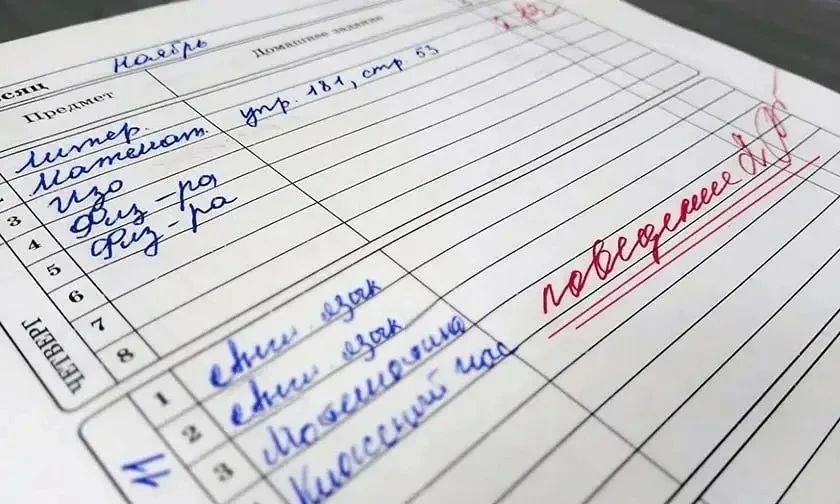 есяц ноябрь
Предмет Домашнее задание
Литер.
Математ. упр. 181, стр 53
3 ИЗО
4 Физ-ра
5 Физ-ра
6
7
8
ЧЕТВЕРГ
поведение 2
1 Англ. язык
2 Англ. язык
3 Математика
Классный час
11